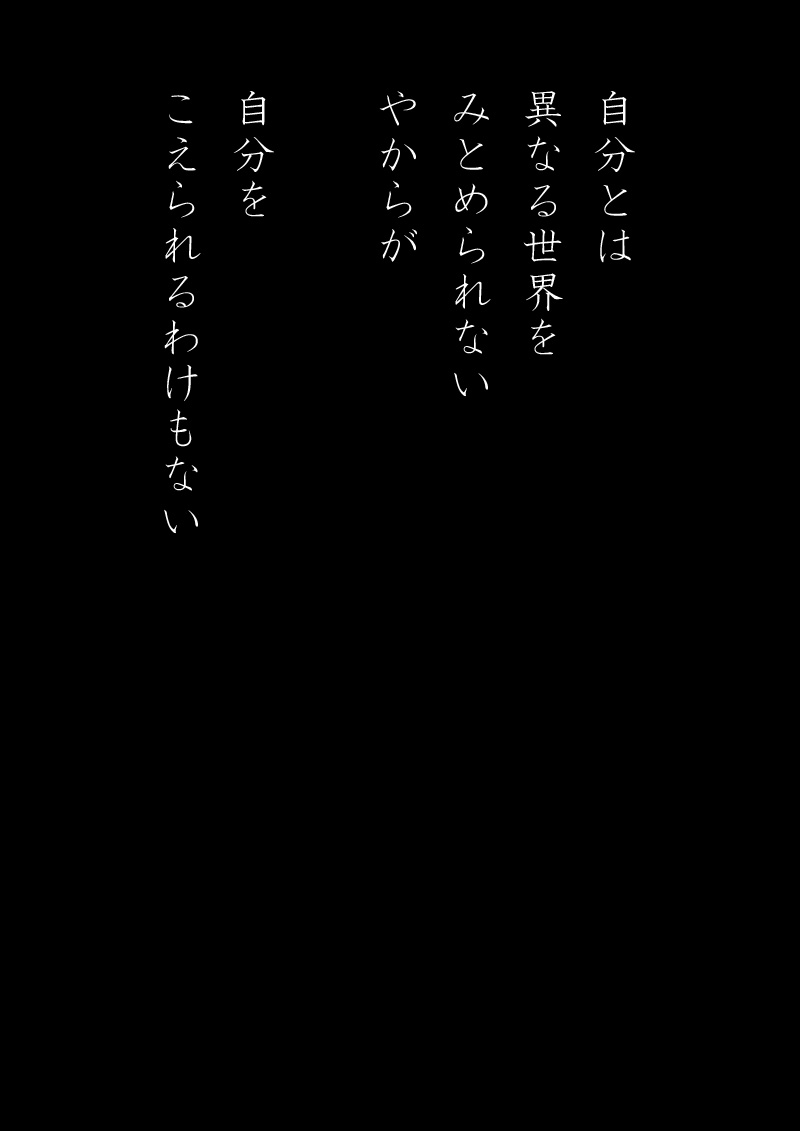 自分とは
異なる世界を
みとめられない
やからが
自分を
こえられるわけもない